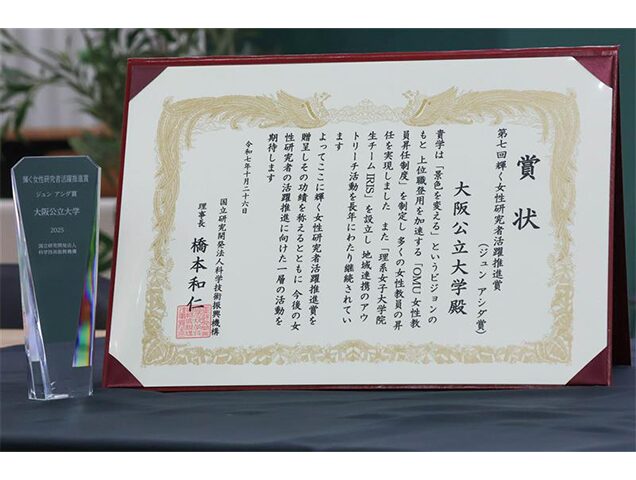 賞状
第七回輝く女性研究者活躍推進賞
(ジュン アシダ賞)
大阪公立大学殿
貴学は「景色を変える」というビジョンの
もと 上位職登用を加速する「OMU女性教
員昇任制度」を制定し 多くの女性教員の昇
任を実現しました また「理系女子大学院
生チームIRIS」を設立し 地域連携のアウ
トリーチ活動を長年にわたり継続されてい
ます
よってここに輝く女性研究者活躍推進賞を
贈呈しその功績を称えるとともに 今後の女
性研究者の活躍推進に向けた一層の活動を
期待します
令和七年十月二十六日
国立研究開発法人科学技術振興機構
理事長 橋本和仁
輝く女性研究者活躍推進賞
ジュン アシダ賞
大阪公立大学
2025
国立研究開発法人
科学技術振興機構